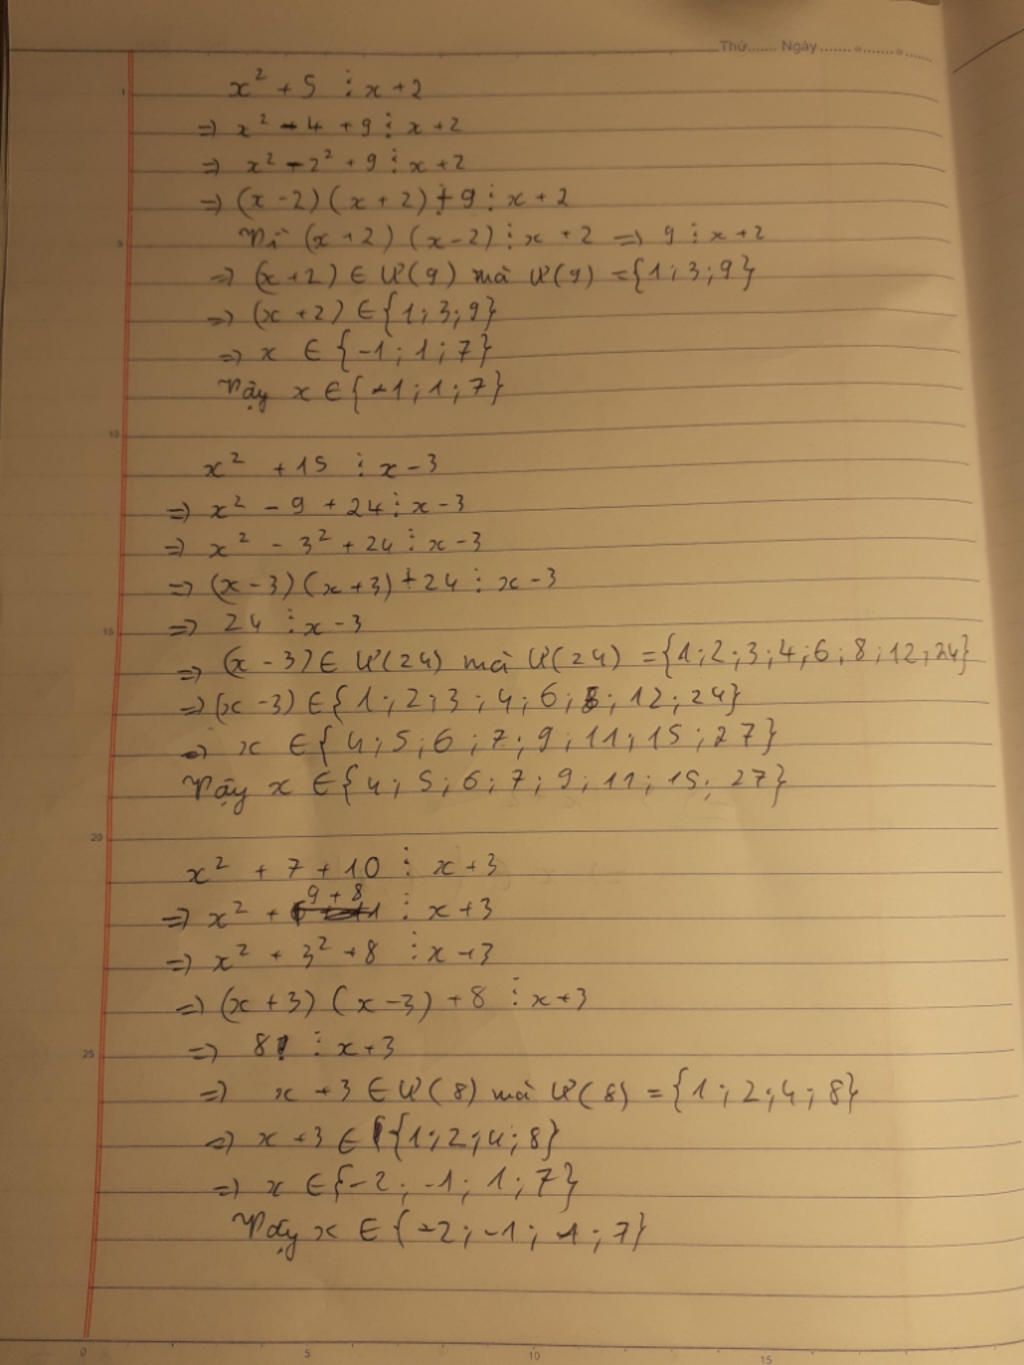 Thứ....... Ngày........ o........ o.......
x² + 5 ⋮ x + 2
⇒ x² - 4 + 9 ⋮ x + 2
⇒ x² - 2² + 9 ⋮ x + 2
⇒ (x - 2) (x + 2) + 9 ⋮ x + 2
Vì (x + 2) (x - 2) ⋮ x + 2 ⇒ 9 ⋮ x + 2
⇒ (x + 2) ∈ Ư(9) mà Ư(9) = {1; 3; 9}
⇒ (x + 2) ∈ {1; 3; 9}
⇒ x ∈ {-1; 1; 7}
Vậy x ∈ {-1; 1; 7}
x² + 15 ⋮ x - 3
⇒ x² - 9 + 24 ⋮ x - 3
⇒ x² - 3² + 24 ⋮ x - 3
⇒ (x - 3) (x + 3) + 24 ⋮ x - 3
⇒ 24 ⋮ x - 3
⇒ (x - 3) ∈ Ư(24) mà Ư(24) = {1; 2; 3; 4; 6; 8; 12; 24}
⇒ (x - 3) ∈ {1; 2; 3; 4; 6; 8; 12; 24}
⇒ x ∈ {4; 5; 6; 7; 9; 11; 15; 27}
Vậy x ∈ {4; 5; 6; 7; 9; 11; 15; 27}
x² + 7 + 10 ⋮ x + 3
⇒ x² + 9 + 8 ⋮ x + 3
⇒ x² + 3² + 8 ⋮ x + 3
⇒ (x + 3) (x - 3) + 8 ⋮ x + 3
⇒ 8 ⋮ x + 3
⇒ x + 3 ∈ Ư(8) mà Ư(8) = {1; 2; 4; 8}
⇒ x + 3 ∈ {1; 2; 4; 8}
⇒ x ∈ {-2; -1; 1; 7}
Vậy x ∈ {-2; -1; 1; 7}
0 5 10 15